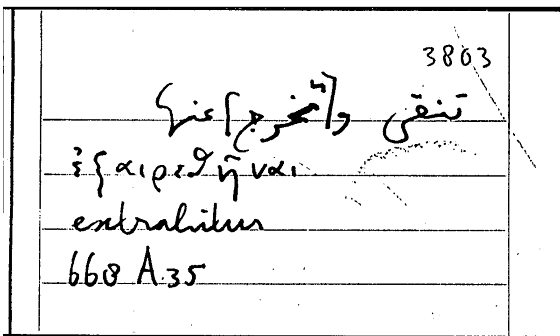 3803
تنقى و[تخرج] عنها
ἐξαιρεθῆναι
extrahitur
668 A.35